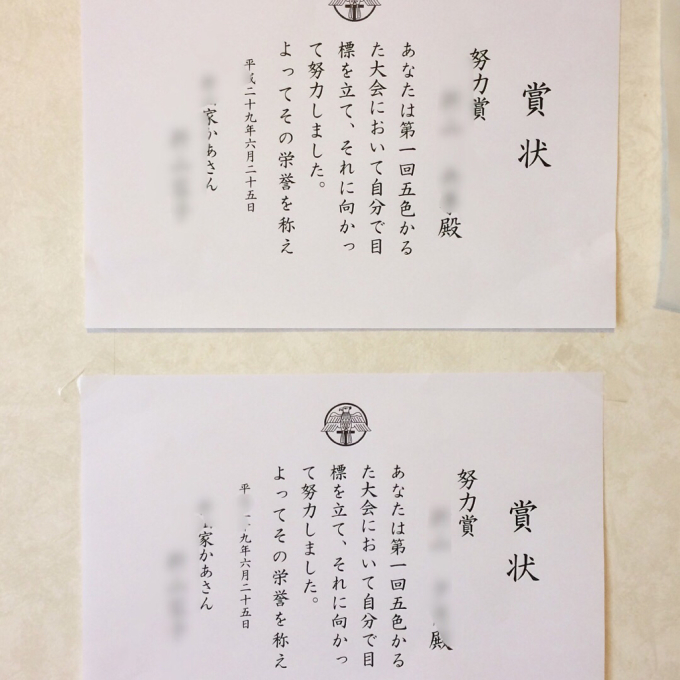 賞状
努力賞
殿
あなたは第一回五色かる
た大会において自分で目
標を立て、それに向かっ
て努力しました。
よってその栄誉を称え
平成二十九年六月二十五日
家かあさん
賞状
努力賞
殿
あなたは第一回五色かる
た大会において自分で目
標を立て、それに向かっ
て努力しました。
よってその栄誉を称え
平 九年六月二十五日
家かあさん